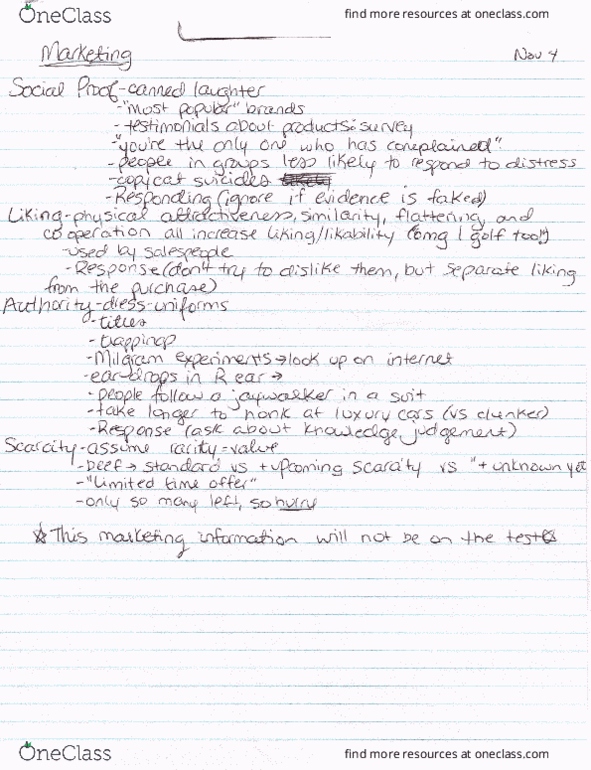 OneClass
find more resources at oneclass.com
Marketing
Nov 4
Social Proof-canned laughter
-"most popular" brands
-testimonials about products: survey
-"you're the only one who has complained"
-people in groups less likely to respond to distress
-copycat suicides
-Responding (ignore if evidence is faked)
Liking-physical attractiveness, similarity, flattering, and
co operation all increase liking/likability (omg I golf too!)
-used by salespeople
-Response (don't try to dislike them, but separate liking
from the purchase)
Authority-dress-uniforms
-titles
-trappings
-Milgram experiments → look up on internet
-ear drops in R ear →
-people follow a jaywalker in a suit
-take longer to honk at luxury cars (vs clunker)
-Response (ask about knowledge, judgement)
Scarcity-assume rarity=value
-beef → standard vs + upcoming scarcity vs "+ unknown yet
-"Limited time offer"
-only so many left, so hurry
☆ This marketing information will not be on the test ☆
OneClass
find more resources at oneclass.com